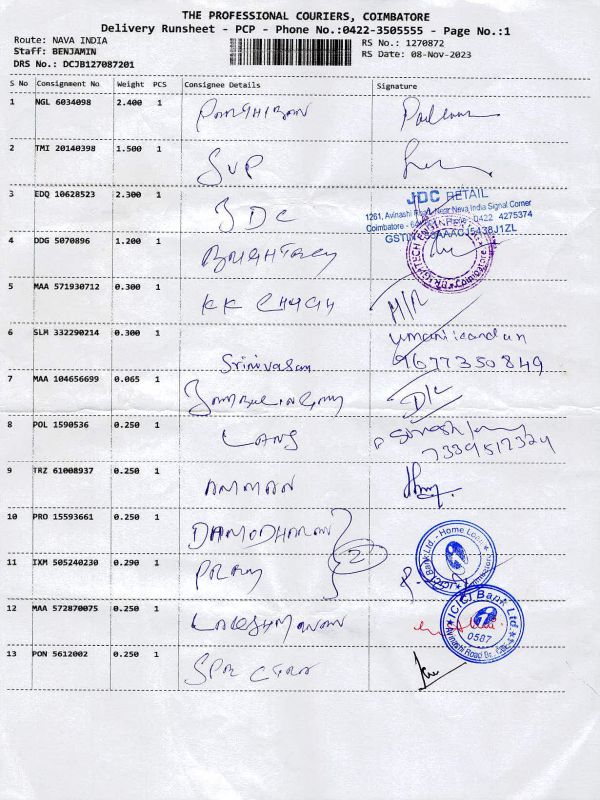 THE PROFESSIONAL COURIERS, COIMBATORE
Delivery Runsheet - PCP - Phone No.:0422-3505555 - Page No.:1
Route: NAVA INDIA
RS No.: 1270872
Staff: BENJAMIN
RS Date: 08-Nov-2023
DRS No.: DCJB127087201
S No Consignment No Weight PCS Consignee Details Signature
1 NGL 6034098 2.400 1 PARTHIBAN
2 TMI 20140398 1.500 1 SVP
3 EDQ 10628523 2.300 1 JDC
JDC RETAIL
1261, Avinashi Road, Near Nava India Signal Corner
Coimbatore - Phone : 0422 4275374
4 DDG 5070896 1.200 1
Coimbatore
5 MAA 571930712 0.300 1 KK
6 SLM 332290214 0.300 1 Srinivasan
9677350849
7 MAA 104656699 0.065 1
D/C
8 POL 1590536 0.250 1
9 TRZ 61008937 0.250 1 AMMAN
10 PRO 15593661 0.250 1 DAMODHARAN
Bank Ltd. - Home Loan
11 IXM 505240230 0.290 1
2
12 MAA 572870075 0.250 1 LAKESHMANAN
ICICI Bank Ltd.
0587
Avinashi Road Br.
13 PON 5612002 0.250 1